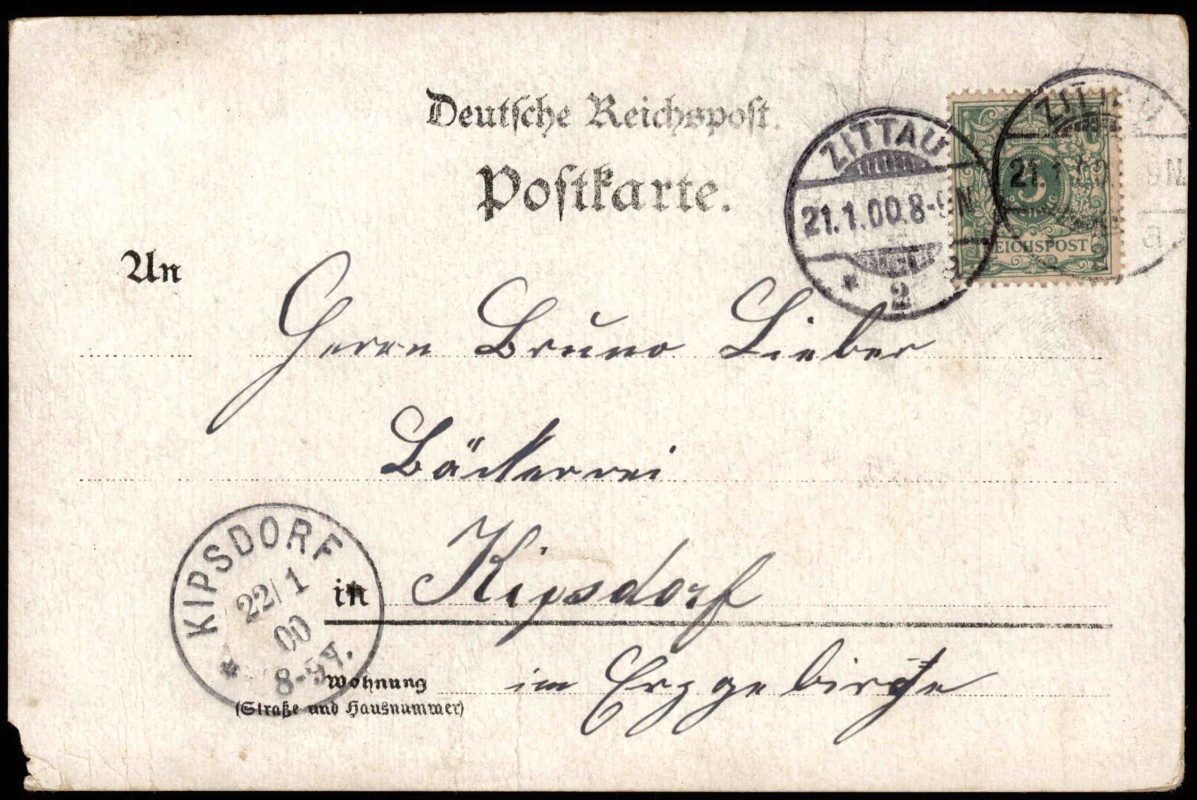 Deutsche Reichspost.
Postkarte.
ZITTAU
21.1.00.8-9N
* 2
ZITTAU
21.1.00. 9N
REICHSPOST
An
Herrn Bruno Lieber
Bäckerrei
in Kipsdorf
im Erzgebirge
KIPSDORF
22/1
00
8-9V.
*
Wohnung
(Straße und Hausnummer)